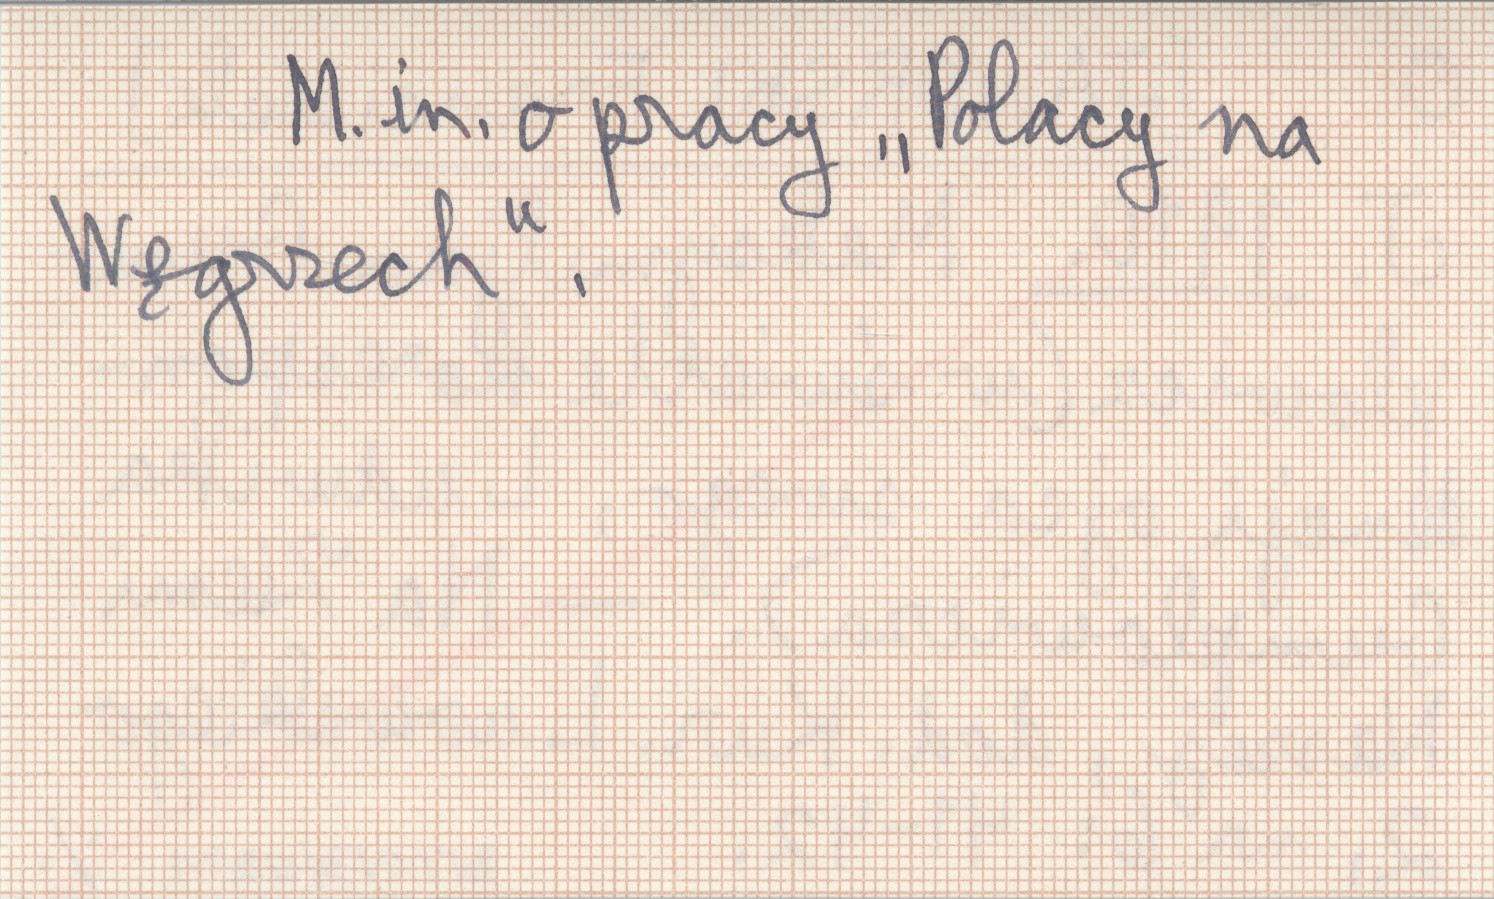 M. in. o pracy „Polacy na
Węgrzech".